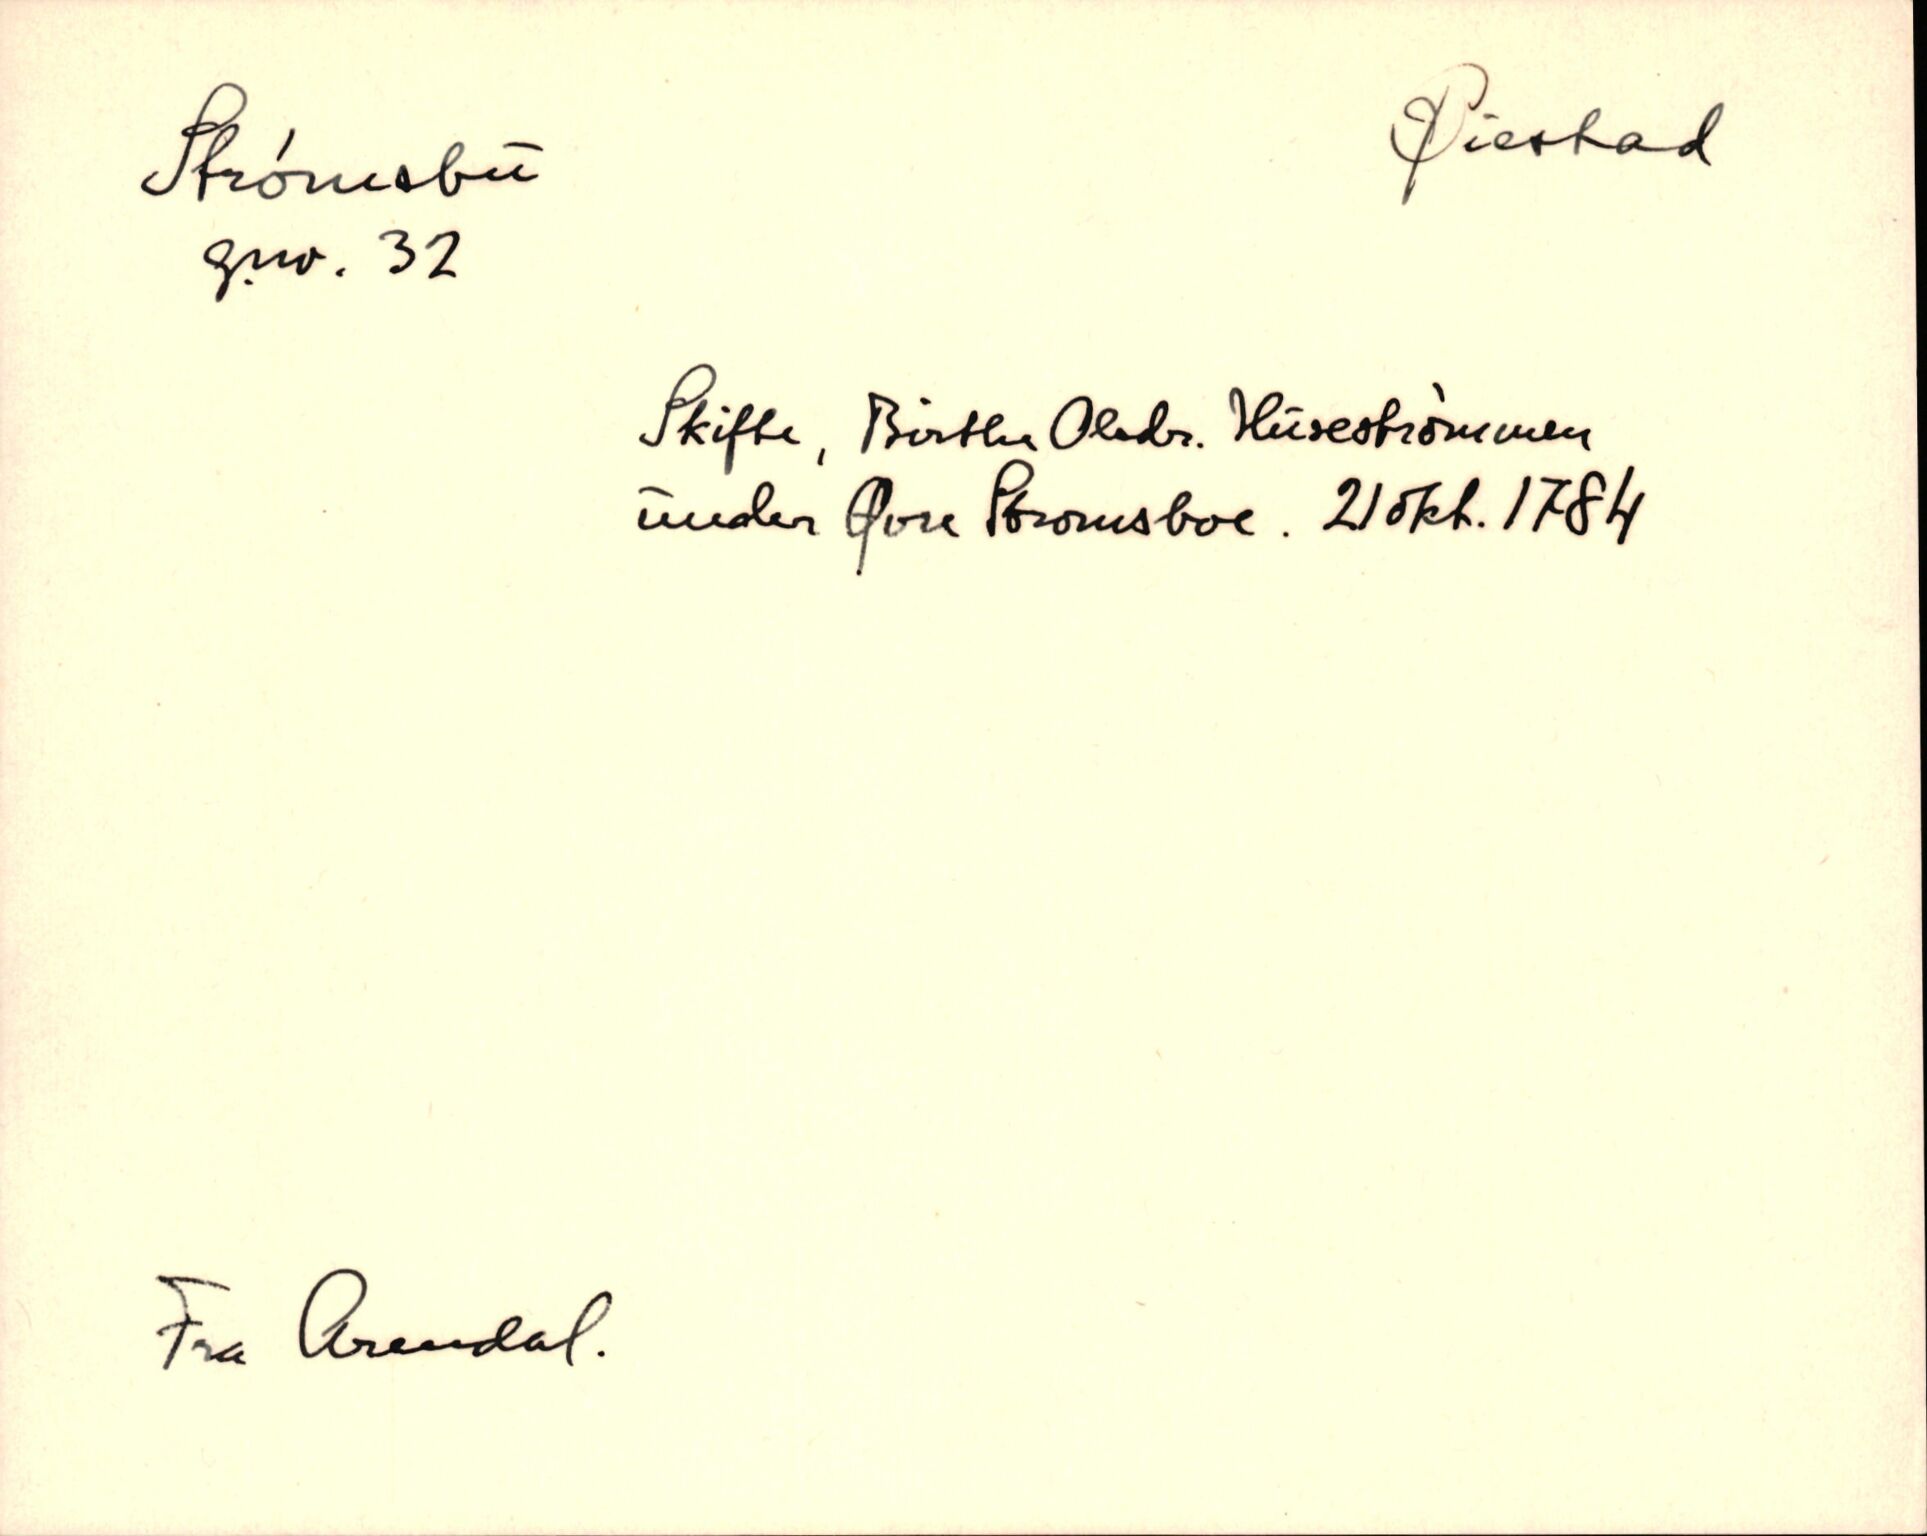 Strømsbu
Øiestad
gnr. 32
Skifte, Birthe Olsdr. Huseströmmen
under Øvre Stromsboe. 21 okt. 1784
Fra Arendal.